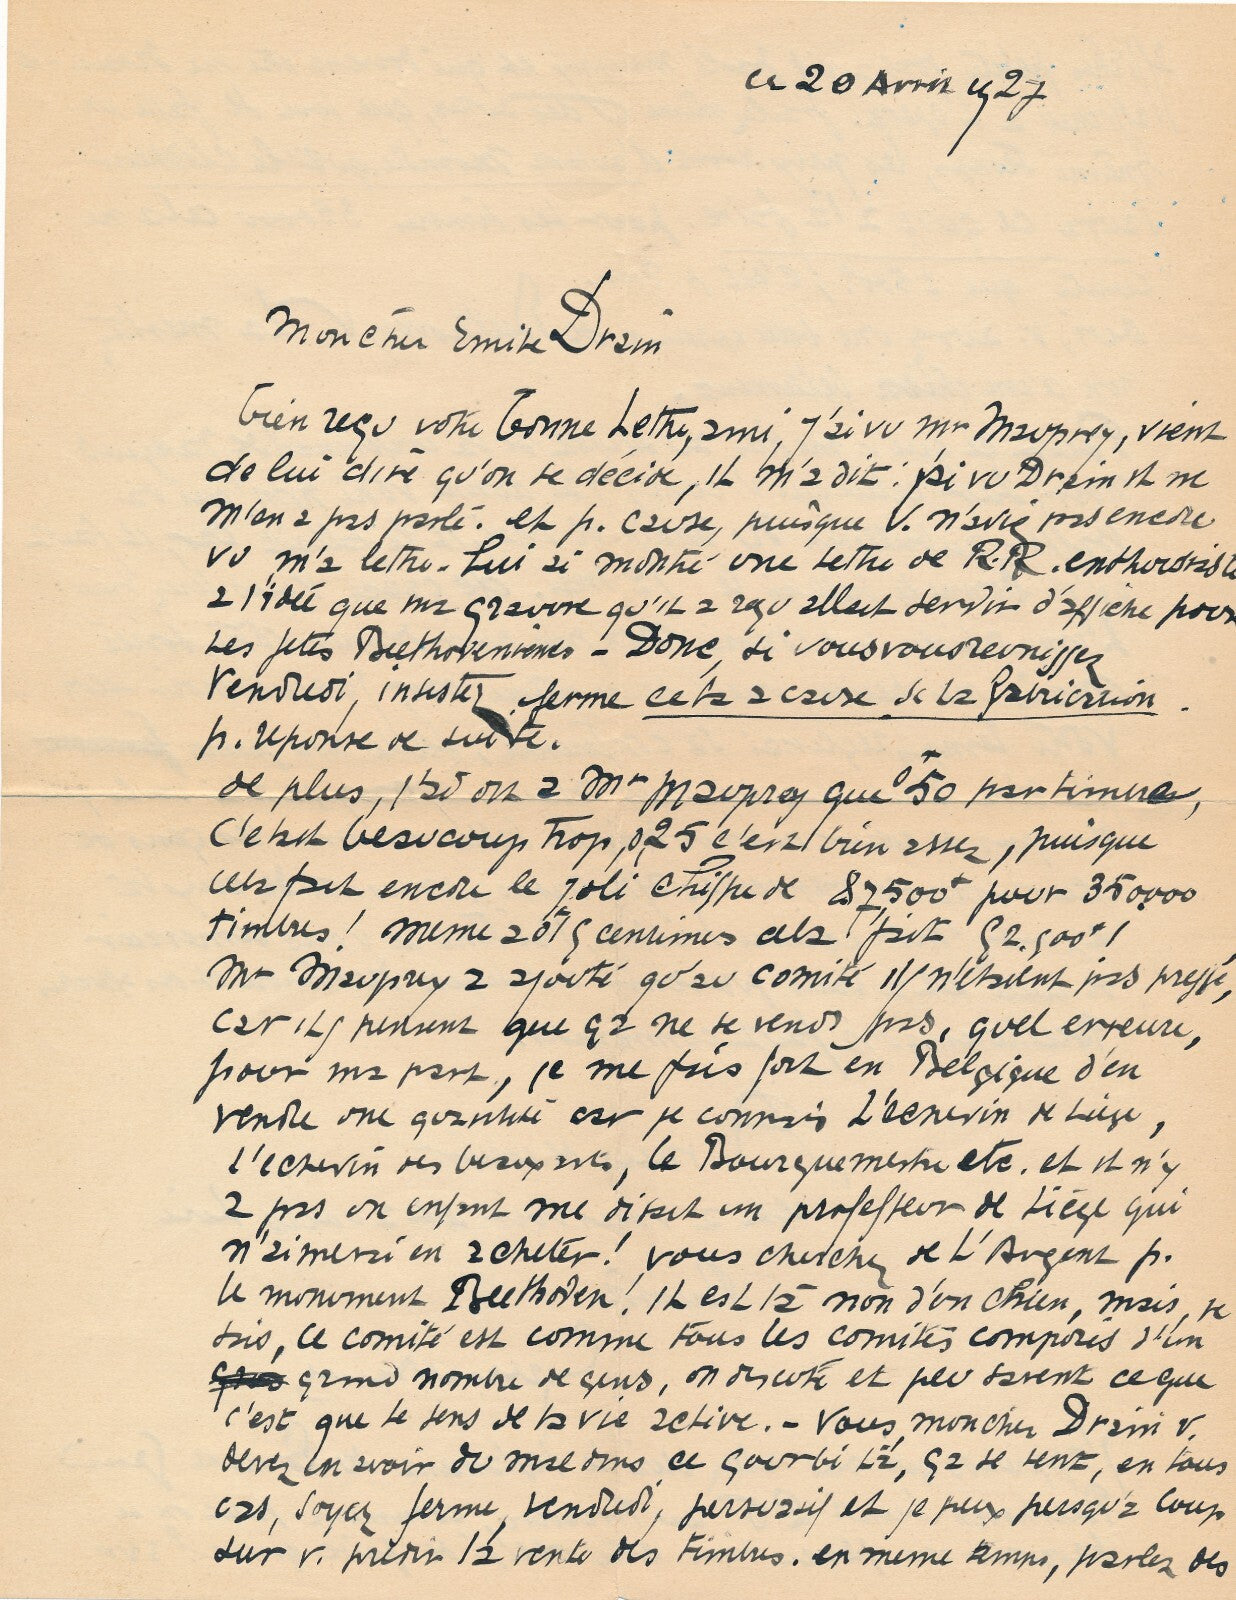 ce 20 Avril 1927
Mon cher Emile Drain
bien reçu votre bonne Lettre, ami, j'ai vu Mr Mauprey, vient
de lui dire qu'on se décide, il m'a dit : j'ai vu Drain il ne
m'en a pas parlé. et p. cause, puisque v. n'aviez pas encore
vu m'a lettre. Lui ai montré une lettre de R.R. enthousiaste
a l'idée que ma gravure qu'il a reçu allait servir d'affiche pour
les fetes Beethoveniennes - Donc, si vous vous reunissez
Vendredi, insistez ferme cela a cause de la fabrication.
p. reponse de suite.
de plus, j'ai dit a Mr Mauprey que 0f50 par timbre,
c'etait beaucoup trop, 0,25 c'est bien assez, puisque
cela fait encore le joli chiffre de 87,500f pour 350000
timbres! meme a 0f15 centimes cela fait 52.500f!
Mr Mauprey a ajouté qu'au comité ils n'étaient pas pressé,
car ils pensent que ça ne se vend pas, quel erreure,
pour ma part, je me fais fort en Belgique d'en
vendre une quantité car je connais l'échevin de Liège,
l'echevin des beaux arts, le Bourguemestre etc. et il n'y
a pas un enfant me disait un professeur de Liége qui
n'aimerai en acheter! vous cherchez de l'Argent p.
le monument Beethoven! il est là non d'un chien, mais, je
sais, ce comité est comme tous les comités composés d'un
grand nombre de gens, on discute et peu savent ce que
c'est que le sens de la vie active. - Vous, mon cher Drain v.
devez en avoir du mal dans ce gourbi là, ça se sent, en tous
cas, soyez ferme, vendredi, persuasif et je peux presqu'a coup
sur v. prédir la vente des timbres. en meme temps, parlez des